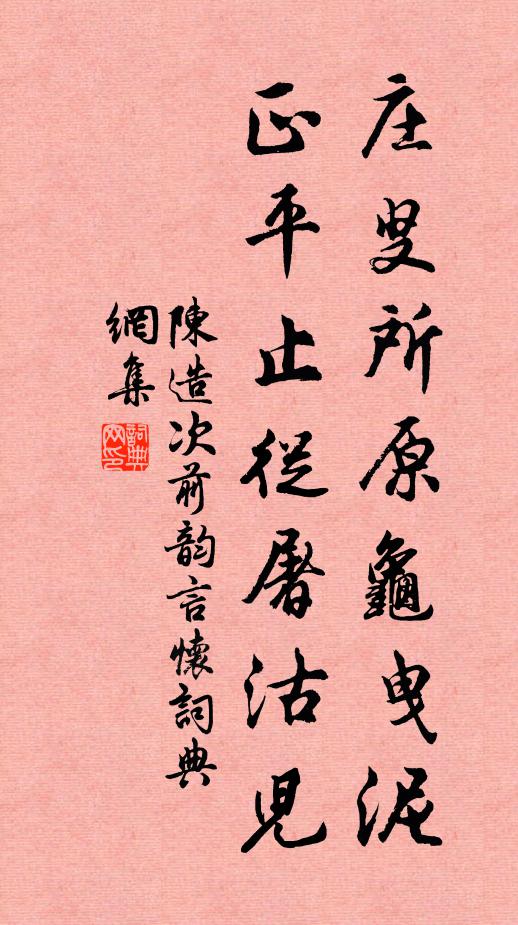 庄叟所原龜曳泥
正平止從屠沽兒
陳造次前韵言懷詞典
網集
詞典網印